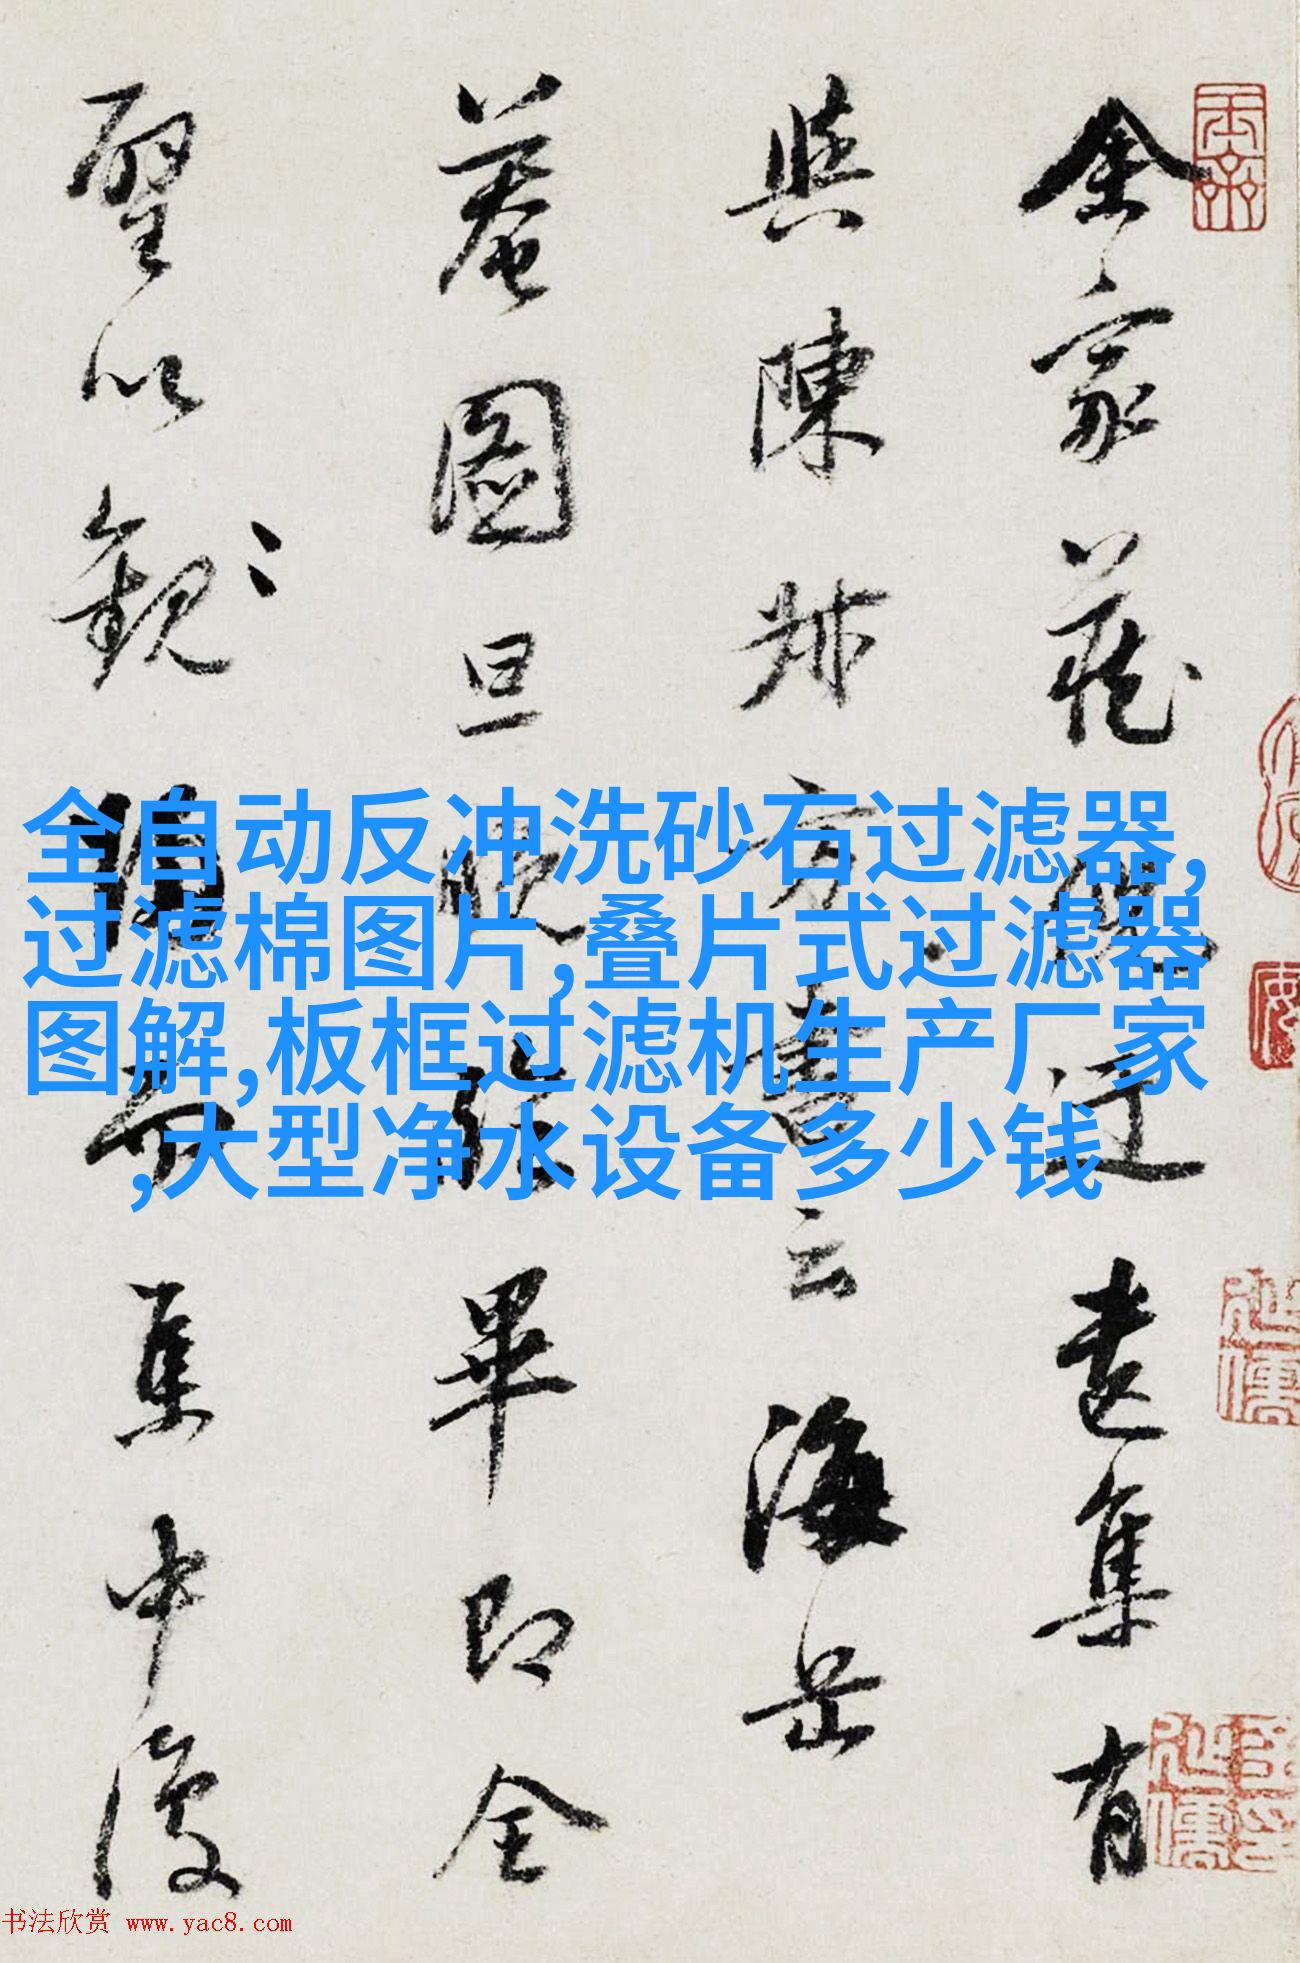 余家藏
遠集有
與陳
方
書云海岳
菴圖
旦
張畢即全
以觀
集中後
全自动反冲洗砂石过滤器,
过滤棉图片,叠片式过滤器
图解,板框过滤机生产厂家
,大型净水设备多少钱
书法欣赏 www.yac8.com